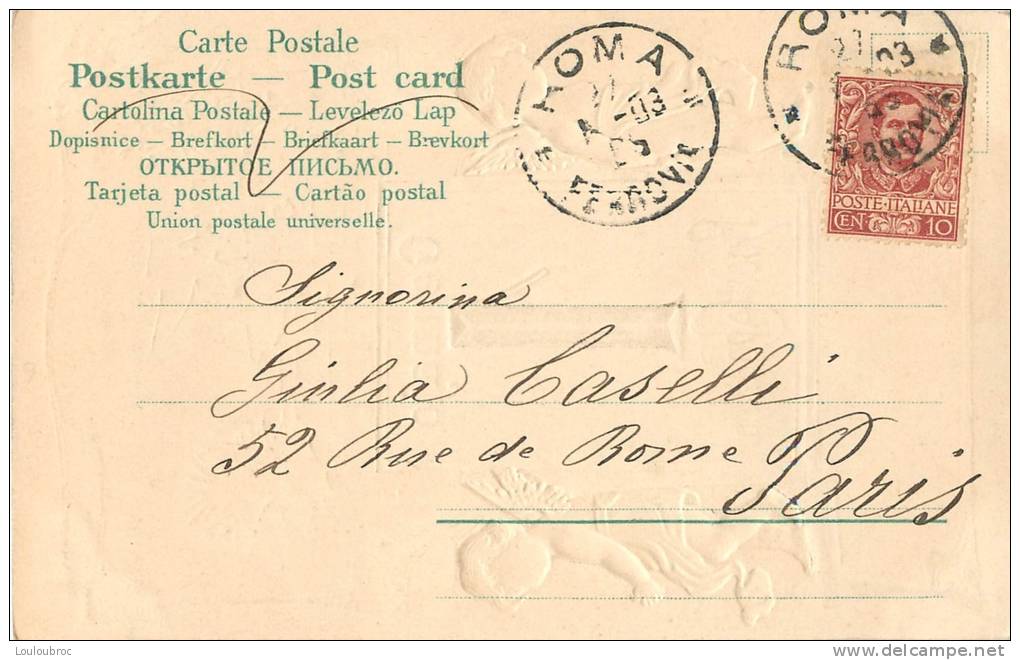 Carte Postale
Postkarte — Post card
Cartolina Postale — Levelezö Lap
Dopisnice — Brefkort — Briefkaart — Brevkort
ОТКРЫТОЕ ПИСЬМО.
Tarjeta postal — Cartão postal
Union postale universelle.
ROMA
FERROVIA
ROMA
POSTE·ITALIANE
CEN 10
Signorina
Giulia Caselli
52 Rue de Rome Paris
Louloubroc
www.delcampe.net